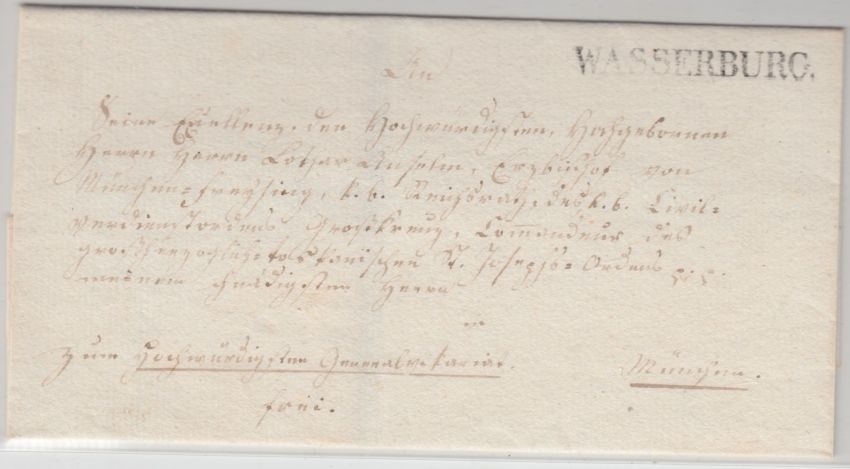 WASSERBURG.
An
Seine Exellenz, den Hochwürdigsten, Hochgebornen
Herrn Herrn Lothar Anselm, Erzbischof von
München-Freysing, k. b. Reichsrath, des k. b. Civil=
verdienstordens Großkreuz, Comandeur des
großherzoglich=toskanischen St. Josephs=Ordens p. p.
meinem gnädigsten Herrn
in
zum Hochwürdigsten Generalvikariat.
München.
frei.